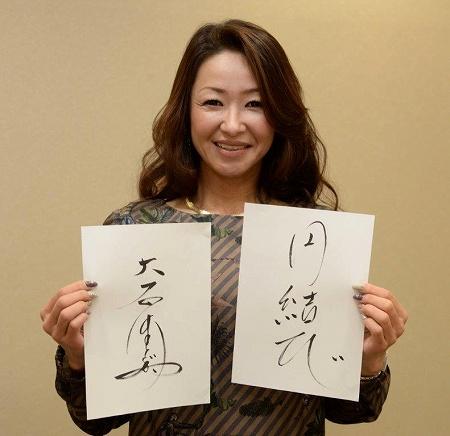 円結び
大石まどか